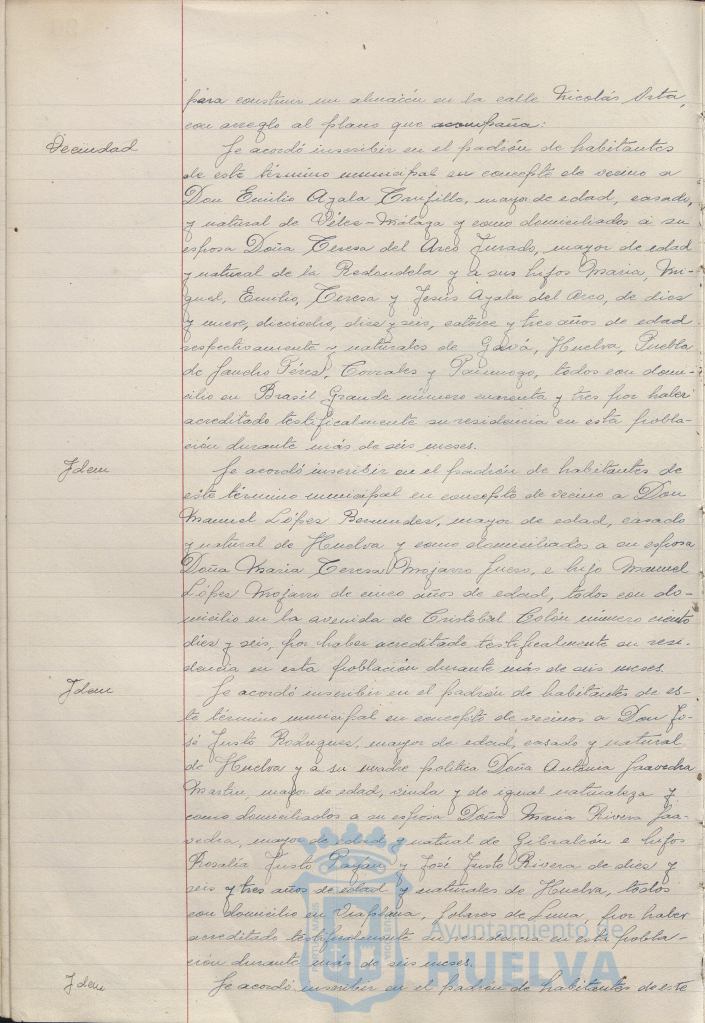 para construir un almacén en la calle Nicolás Orta,
con arreglo al plano que acompaña:
Vecindad
Se acordó inscribir en el padrón de habitantes
de este término municipal en concepto de vecino a
Don Emilio Ayala Trujillo, mayor de edad, casado
y natural de Vélez-Málaga y como domiciliados a su
esposa Doña Teresa del Arco Jurado, mayor de edad
y natural de la Redondela y a sus hijos Maria, Mi-
guel, Emilio, Teresa y Jesús Ayala del Arco, de diez
y nueve, dieciocho, diez y seis, catorce y tres años de edad
respectivamente y naturales de Gavá, Huelva, Puebla
de Sancho Pérez, Corrales y Paymogo, todos con domi-
cilio en Brasil Grande número cuarenta y tres por haber
acreditado testificalmente su residencia en esta pobla-
ción durante más de seis meses.
Idem
Se acordó inscribir en el padrón de habitantes de
este término municipal en concepto de vecino a Don
Manuel López Bermudez, mayor de edad, casado
y natural de Huelva y como domiciliados a su esposa
Doña Maria Teresa Mojarro, e hijo Manuel
López Mojarro de cinco años de edad, todos con do-
micilio en la avenida de Cristobal Colón número ciento
diez y seis, por haber acreditado testificalmente su resi-
dencia en esta población durante más de seis meses.
Idem
Se acordó inscribir en el padrón de habitantes de es-
te término municipal en concepto de vecinos a Don Jo-
sé Justo Rodriguez, mayor de edad, casado y natural
de Huelva y a su madre politica Doña Antonia Saavedra
Martin, mayor de edad, viuda y de igual naturaleza y
como domiciliados a su esposa Doña Maria Rivera Saa-
vedra, mayor de edad y natural de Gibraleón e hijos
Rosalia Justo y José Justo Rivera de diez y
seis y tres años de edad y naturales de Huelva, todos
con domicilio en Viaplana, solares de Luna, por haber
acreditado testificalmente su residencia en esta pobla-
ción durante más de seis meses.
Idem
Se acordó inscribir en el padrón de habitantes de este
Ayuntamiento de
HUELVA